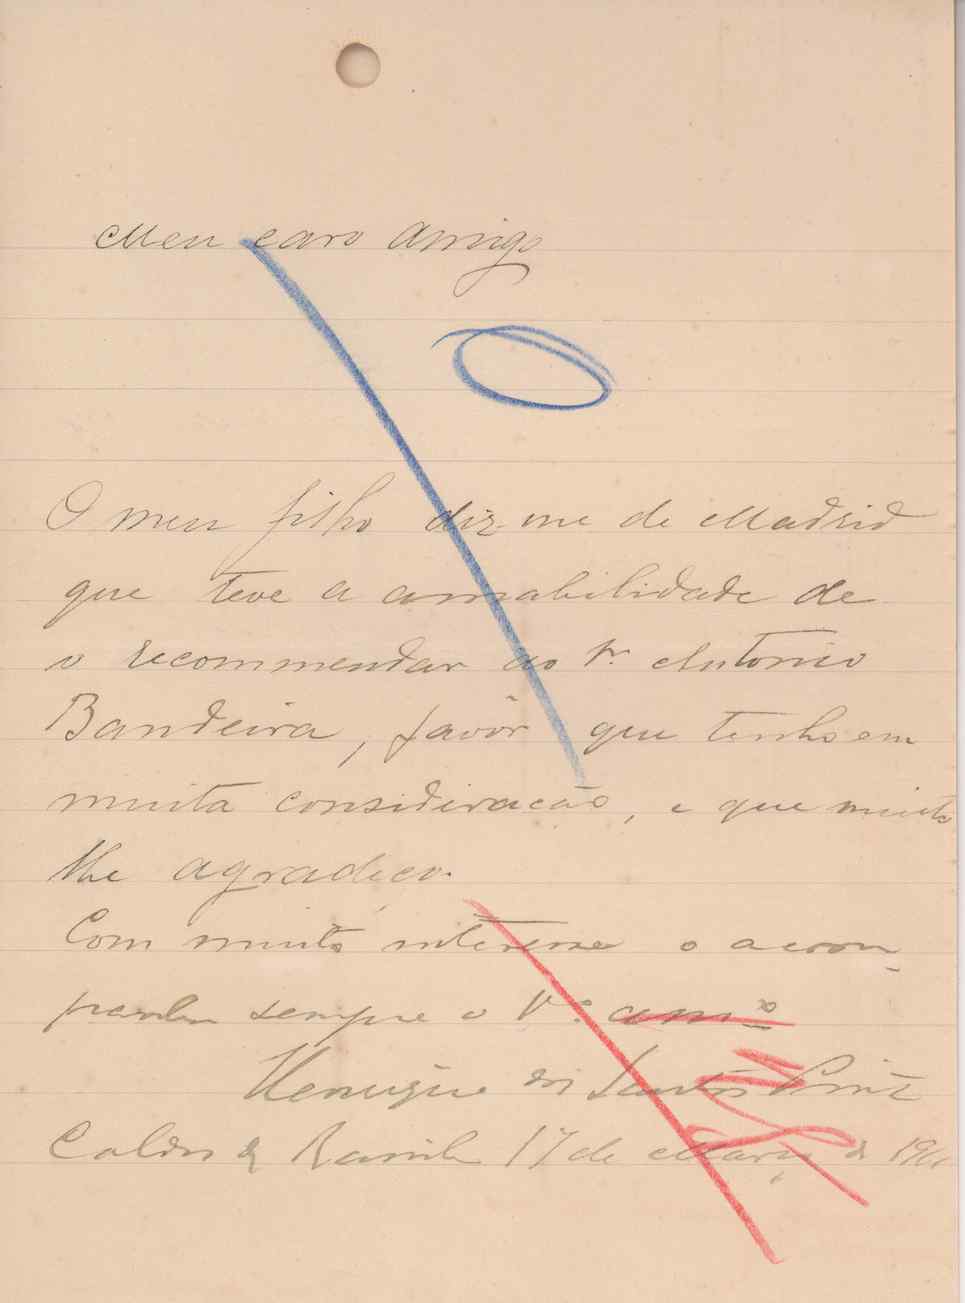 Meu caro Amigo
O meu filho diz-me de Madrid
que teve a amabilidade de
o recommendar ao Sr. Antonio
Bandeira, favôr que tenho em
muita consideração, e que muito
lhe agradeço.
Com muito interesse o acom-
panha sempre o Vº. amº
Henrique dos Santos
Caldas da Rainha 17 de Março de